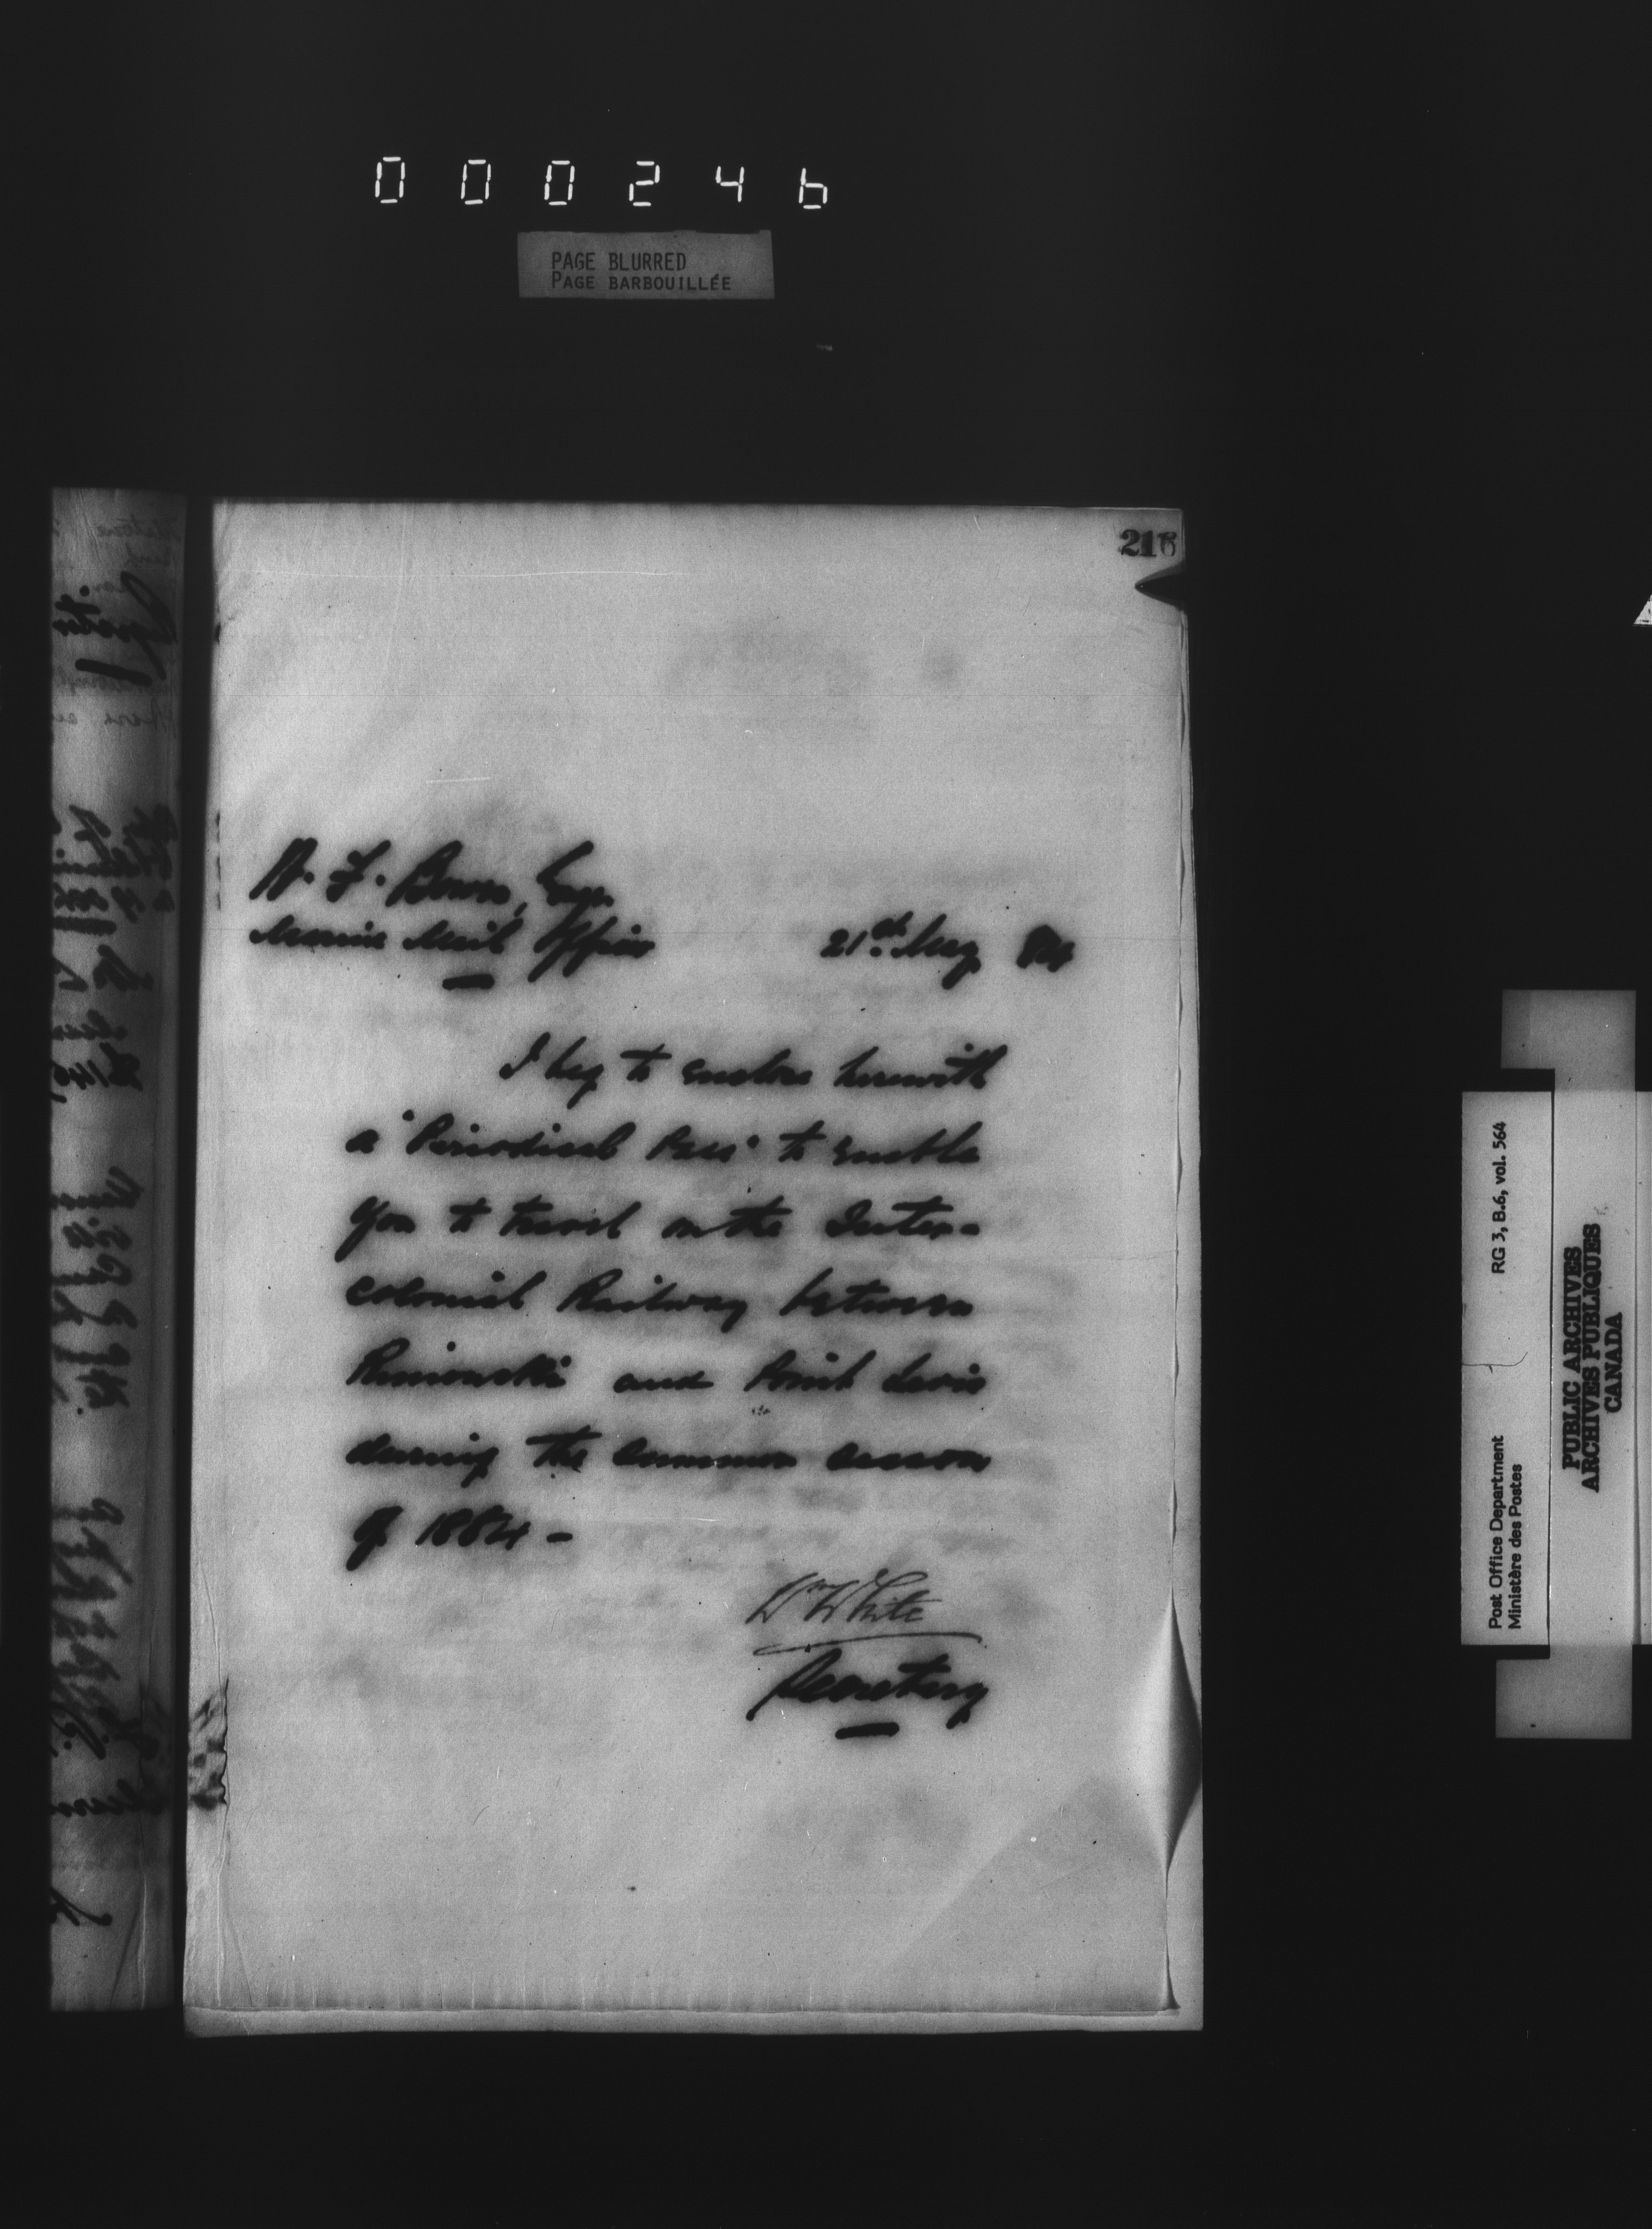 000246
PAGE BLURRED
PAGE BARBOUILLÉE
216
W. F. Bowes, Esqr.
Marine Mail Officer
21st May 84
I beg to enclose herewith
a "Periodical Pass" to enable
you to travel on the Inter-
colonial Railway between
Rimouski and Point Levis
during the summer season
of 1884 -
Wm White
Secretary
Post Office Department RG 3, B.6, vol. 564
Ministère des Postes
PUBLIC ARCHIVES
ARCHIVES PUBLIQUES
CANADA